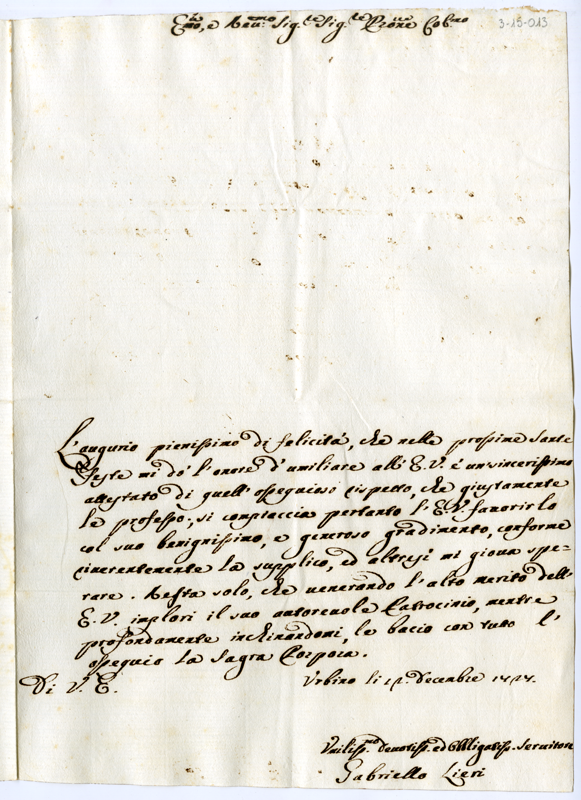 3-15-013
Em.o, e Reu.mo Sig.re Sig.re Prōne Col.mo
L'augurio pienissimo di felicità, che nelle prossime Sante
Feste mi dò l'onore d'umiliare all'E. V. è un sincerissimo
attestato di quell'ossequioso rispetto, che giustamente
le professo, si compiaccia pertanto l'E. V. fauorirlo
col suo benignissimo, e generoso gradimento, conforme
riuerentemente la supplico, ed altresì mi gioua spe-
rare. Resta solo, che uenerando l'alto merito dell'
E. V. implori il suo autoreuole Patrocinio, mentre
profondamente inchinandomi, le bacio con tutto l'
ossequio la Sagra Porpora.
Di V. E. Vrbino li Decembre
Vmiliss.mo Deuotiss. ed Obbligatiss. Seruitore
Gabriello